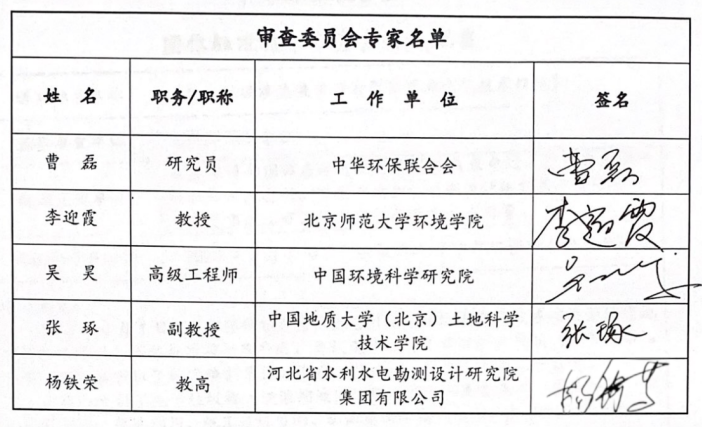 审查委员会专家名单
姓 名 职务/职称 工 作 单 位 签名
曹 磊 研究员 中华环保联合会 曹磊
李迎霞 教授 北京师范大学环境学院 李迎霞
吴 昊 高级工程师 中国环境科学研究院
张 琢 副教授 中国地质大学（北京）土地科学
技术学院 张琢
杨铁荣 教高 河北省水利水电勘测设计研究院
集团有限公司